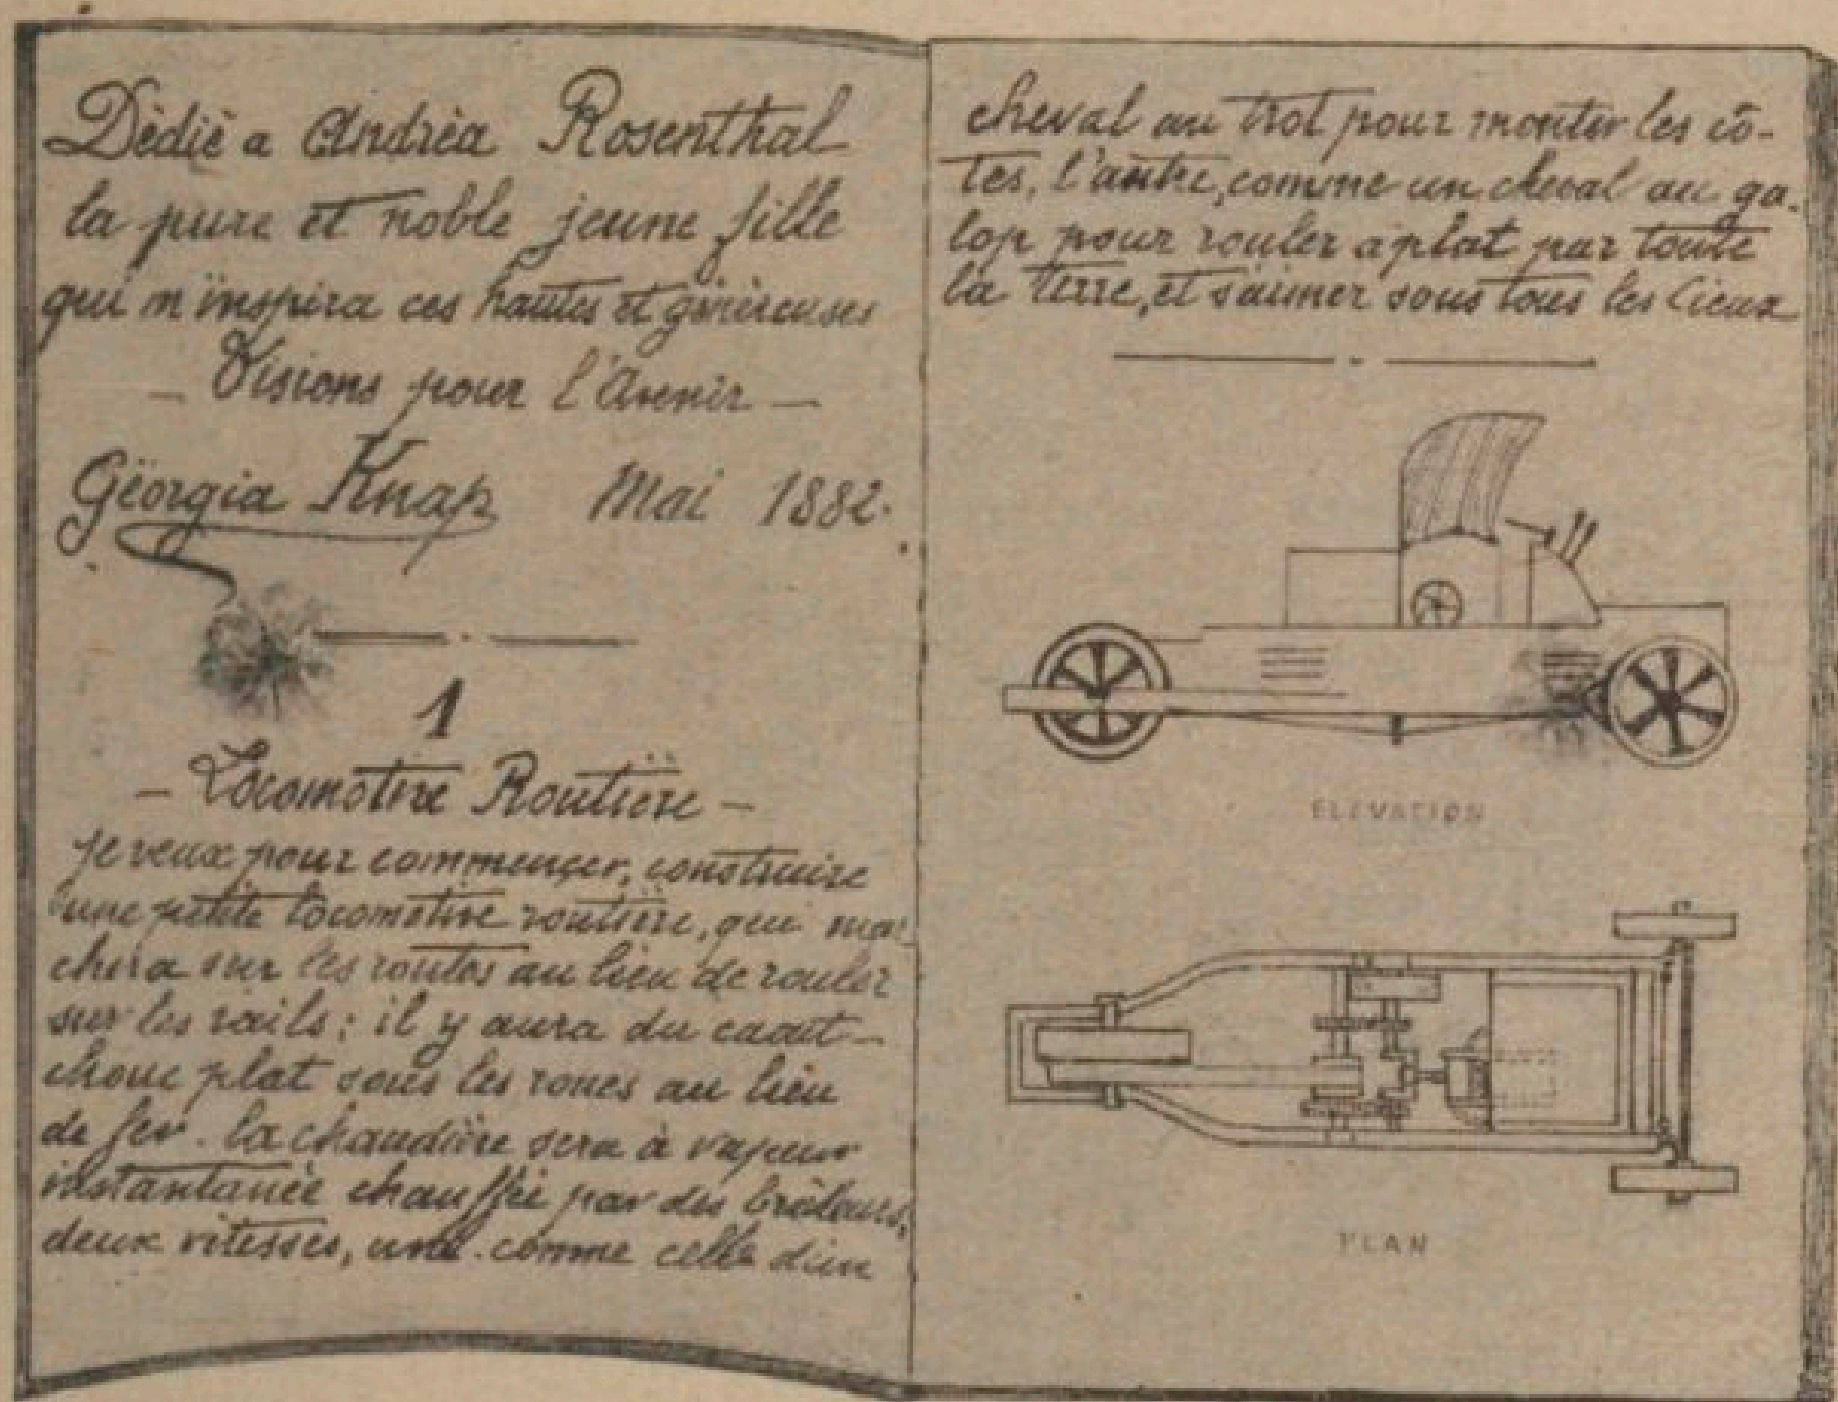 Dédié a Andréa Rosenthal
la pure et noble jeune fille
qui m'inspira ces hautes et généreuses
– Visions pour l'Avenir –
Géorgia Knap Mai 1882.
1
– Locomotive Routière –
je veux pour commençer, construire
une petite locomotive routière, qui mar-
chera sur les routes au lieu de rouler
sur les rails; il y aura du caout-
chouc plat sous les roues au lieu
de fer. la chaudière sera à vapeur
instantanée chauffée par des brûleurs,
deux vitesses, une comme celle d'un
cheval au trot pour monter les cô-
tes, l'autre, comme un cheval au ga-
lop pour rouler à plat par toute
la terre, et s'aimer sous tous les Cieux
ELEVATION
PLAN